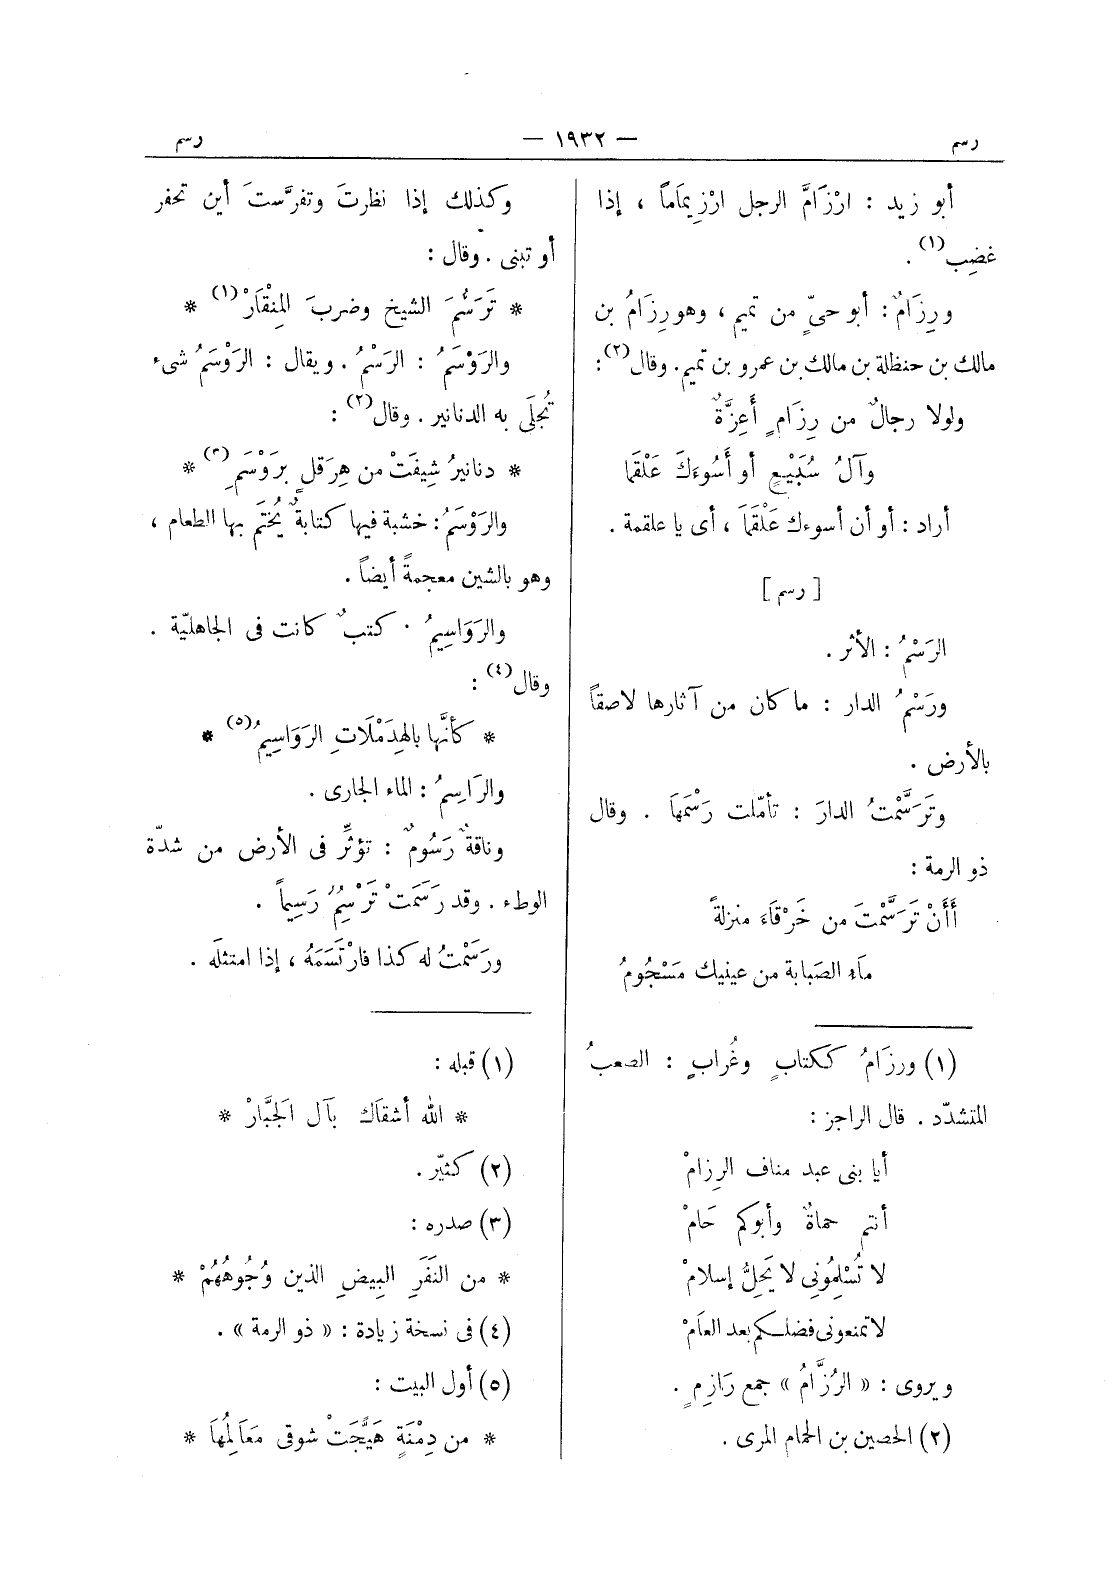 رسم — ١٩٣٢ — رسم
أبو زيد : ارْزَامَّ الرجل ارْزِيمَاماً ، إذا
غضِب(١) .
ورِزَامٌ : أبو حىٍّ من تميم ، وهو رِزَامُ بن
مالك بن حنظلة بن مالك بن عمرو بن تميم. وقال(٢) :
ولولا رجالٌ من رِزَامٍ أَعِزَّةٌ
وآلُ سُبَيْعٍ أو أَسُوءَكَ عَلْقَمَا
أراد : أو أن أسوءك عَلْقَمَا ، أى يا علقمة .
[ رسم ]
الرَسْمُ : الأثر .
ورَسْمُ الدار : ما كان من آثارها لاصقاً
بالأرض .
وتَرَسَّمْتُ الدارَ : تأمّلت رَسْمَهَا . وقال
ذو الرمة :
أَأَنْ تَرَسَّمْتَ من خَرْقَاءَ منزلةً
مَاء الصَبابة من عينيك مَسْجُومُ
(١) ورزَامُ ككتابٍ وغُرابٍ : الصعبُ
المتشدّد . قال الراجز :
أيا بنى عبد مناف الرِزامْ
أنتم حماةٌ وأبوكم حَامْ
لا تُسْلِمُونِى لا يَحِلُّ إسلامْ
لا تمنعونى فضلكم بعد العَامْ
ويروى : « الرُزَّامُ » جمع رَازِمٍ .
(٢) الحصين بن الحمام المرى .
وكذلك إذا نظرتَ وتفرَّستَ أين تحفر
أو تبنى . وقال :
* تَرَسُّمَ الشيخ وضربَ المِنْقَارْ(١) *
والرَوْسَمُ : الرَسْمُ . ويقال : الرَوْسَمُ شىء
تُجلَى به الدنانير . وقال(٢) :
* دنانيرُ شِيفَتْ من هِرَقلٍ بِرَوْسَمِ(٣) *
والرَوْسَمُ : خشبة فيها كتابةٌ يُختَم بها الطعام ،
وهو بالشين معجمةً أيضاً .
والرَوَاسِيمُ . كتبٌ كانت فى الجاهليّة .
وقال(٤) :
* كأنَّها بالهِدَمْلَاتِ الرَوَاسِيمُ(٥) *
والرَاسِمُ : الماء الجارى .
وناقةٌ رَسُومٌ : تؤثِّر فى الأرض من شدّة
الوطء . وقد رَسَمَتْ تَرْسِمُ رَسِيماً .
ورَسَمْتُ له كذا فارْتَسَمَهُ ، إذا امتثلَه .
(١) قبله :
* الله أسْقاك بآل الجَبَّارْ *
(٢) كثيّر .
(٣) صدره :
* من النَفَرِ البِيضِ الذين وُجُوهُهُمْ *
(٤) فى نسخة زيادة : « ذو الرمة » .
(٥) أول البيت :
* من دِمْنَةٍ هَيَّجَتْ شوقى مَعَالِمُهَا *